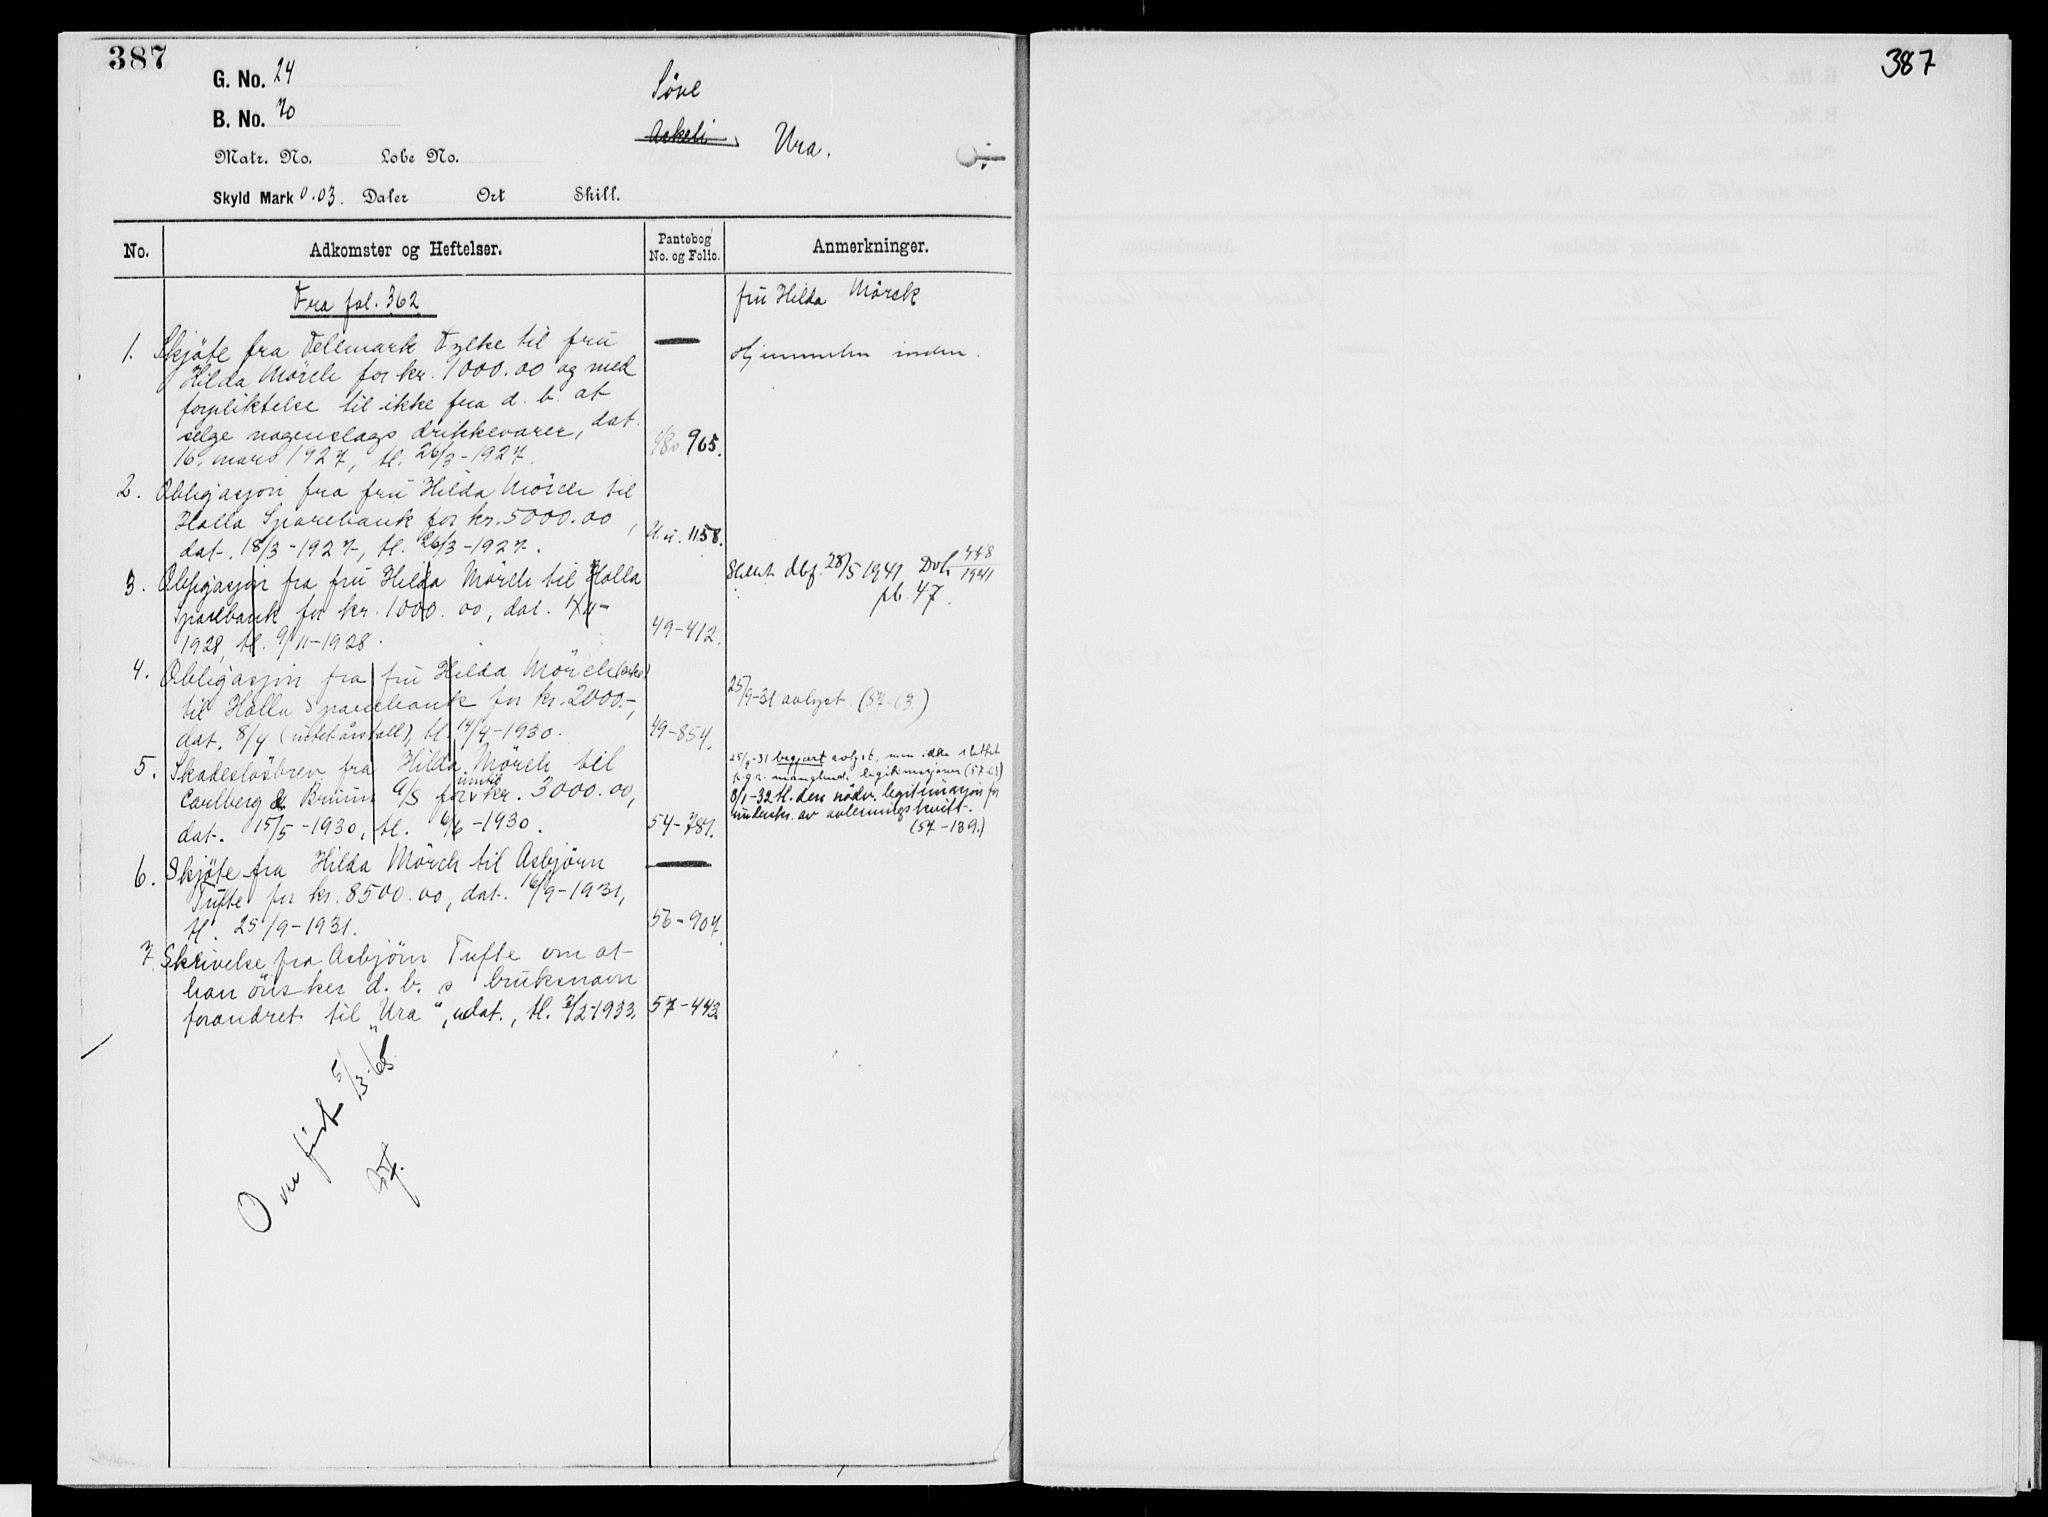 387
G. No. 24
B. No. 70
Matr. No. Lobe No.
Skyld Mark 0.03. Daler Ort Skill.
Söve
Askeli Ura.
No. Adkomster og Heftelser. Pantebog No. og Folio. Anmerkninger.
Fra fol. 362
fru Hilda Mörck
1. Skjöte fra Telemark Fylke til fru
Hilda Mörch for kr. 1000.00 og med
forpliktelse til ikke fra d. b. at
selge nogenslags drikkevarer, dat.
16. mars 1927, tl. 26/3-1927. 965.
Hjemmelen inden.
2. Obligasjon fra fru Hilda Mörch til
Holla Sparebank for kr. 5000.00,
dat. 18/3-1927, tl. 26/3-1927. 1158.
Slettet dbf. 28/5 1941 Dok 448/1941
pb. 47.
3. Obligasjon fra fru Hilda Mörch til Holla
Sparebank for kr. 1000.00, dat.
1928, tl. 9/11-1928. 49-412.
4. Obligasjon fra fru Hilda Mörch (enke)
til Holla Sparebank for kr. 2000.-,
dat. 8/4 (ubet. årstall), tl. 14/4-1930. 49-854.
25/9-31 avlyst. (57-63.)
5. Skadeslösbrev fra Hilda Mörch til
Carlberg & Bruun A/S for inntil kr. 3000.00,
dat. 15/5-1930, tl. 6/6-1930. 54-781.
25/9-31 begjært avlyst, men ikke slettet
p.g.a. manglende legitimasjoner (57-63)
8/1-32 tl. den nödv. legitimasjon for
underskr. av avlesningskvitt.
(57-189.)
6. Skjöte fra Hilda Mörch til Asbjörn
Tufte for kr. 8500.00, dat. 16/9-1931,
tl. 25/9-1931. 56-907.
7. Skrivelse fra Asbjörn Tufte om at
han önsker d. b. s bruksnavn
forandret til „Ura", udat., tl. 2/2-1933. 57-443.
Overfört 5/3-68
387